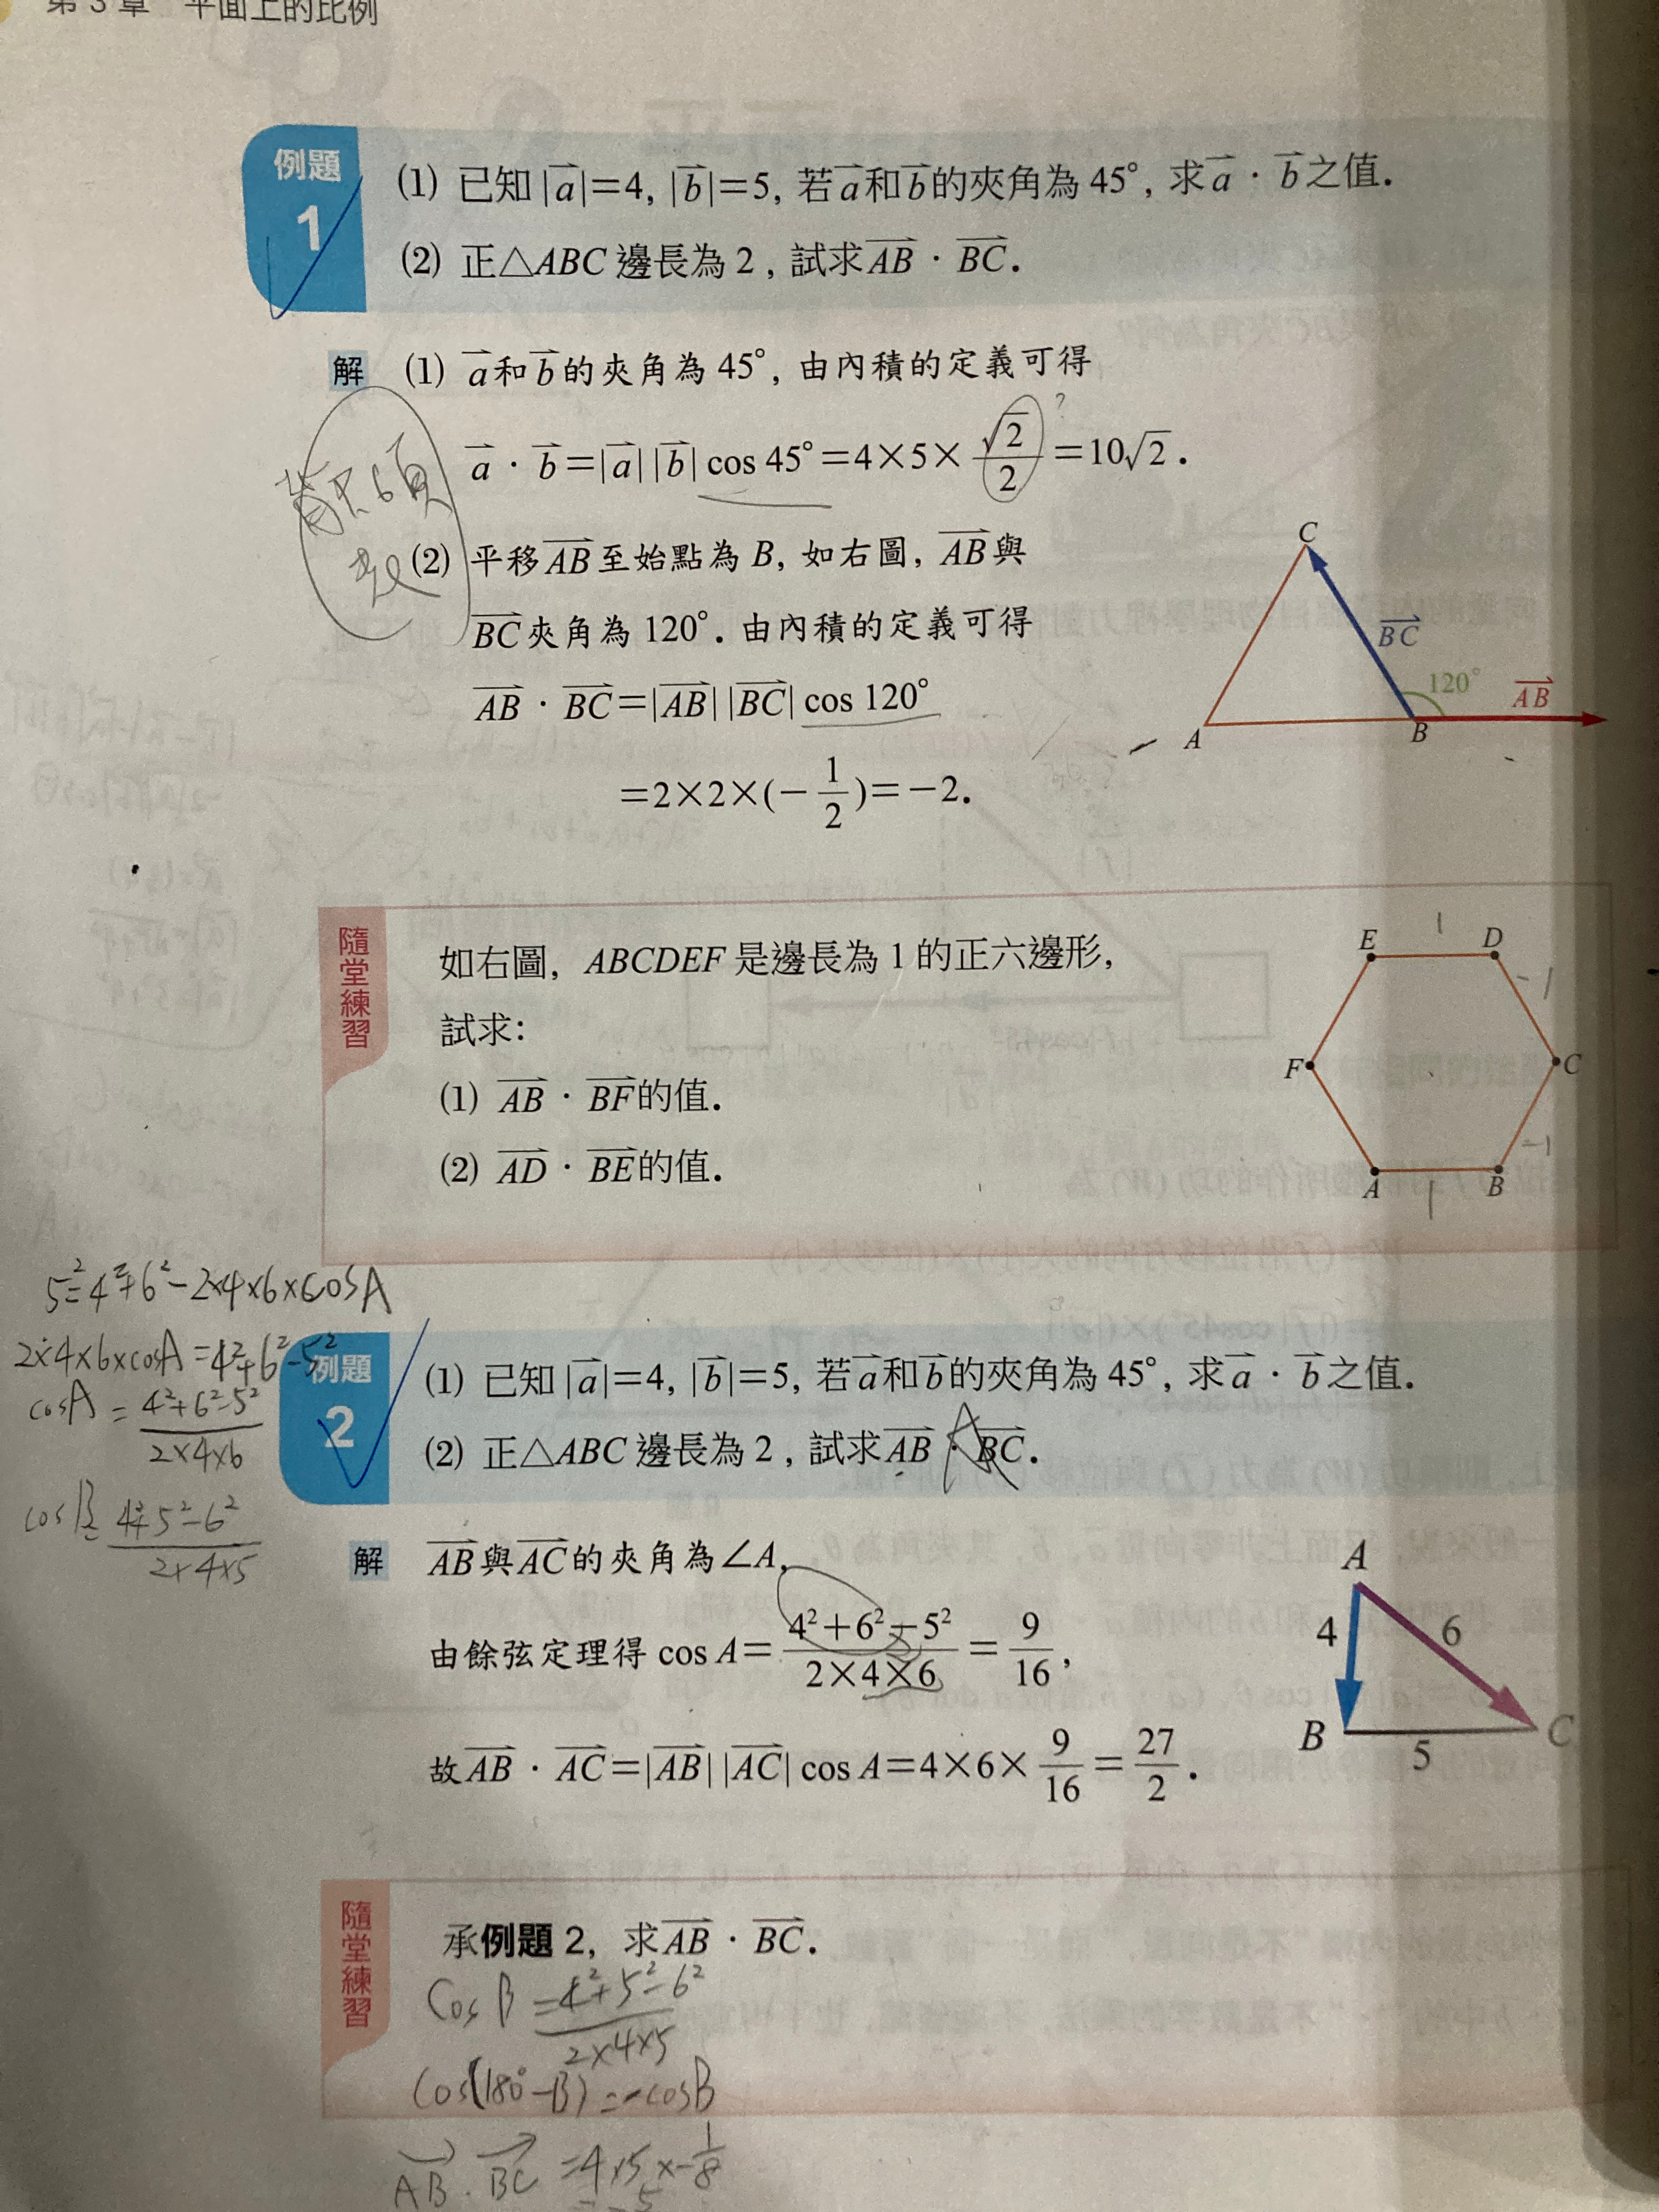 第 3 章 平面上的比例
例題 1
(1) 已知 |a⃗|=4, |b⃗|=5, 若a⃗和b⃗的夾角為 45°, 求a⃗ · b⃗之值.
(2) 正△ABC 邊長為 2 , 試求A͞B⃗ · B͞C⃗.
解 (1) a⃗和b⃗的夾角為 45°, 由內積的定義可得
a⃗ · b⃗=|a⃗| |b⃗| cos 45°=4×5×√2/2=10√2 .
?
(2) 平移AB⃗至始點為 B, 如右圖, AB⃗與
BC⃗夾角為 120°. 由內積的定義可得
AB⃗ · BC⃗=|AB⃗| |BC⃗| cos 120°
=2×2×(-1/2)=-2.
C
BC⃗
120°
AB⃗
A
B
隨堂練習
如右圖, ABCDEF 是邊長為 1 的正六邊形,
試求:
(1) AB⃗ · BF⃗的值.
(2) AD⃗ · BE⃗的值.
E 1 D
-1
F C
-1
A 1 B
5²=4²+6²-2×4×6×cosA
2×4×6×cosA=4²+6²-5²
cosA = (4²+6²-5²)/(2×4×6)
cosB= (4²+5²-6²)/(2×4×5)
例題 2
(1) 已知 |a⃗|=4, |b⃗|=5, 若a⃗和b⃗的夾角為 45°, 求a⃗ · b⃗之值.
(2) 正△ABC 邊長為 2 , 試求AB⃗ · BC⃗.
A
解 AB⃗與AC⃗的夾角為∠A,
由餘弦定理得 cos A=(4²+6²-5²)/(2×4×6)=9/16,
故AB⃗ · AC⃗=|AB⃗| |AC⃗| cos A=4×6×9/16=27/2 .
A
4 6
B C
5
隨堂練習
承例題 2, 求AB⃗ · BC⃗.
Cos B =(4²+5²-6²)/(2×4×5)
Cos(180°-B)=-cosB
AB⃗ · BC⃗ =4×5×-1/8
=-5